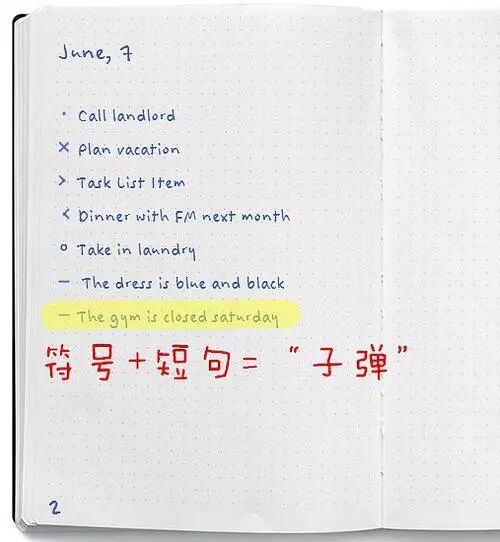 June, 7
· Call landlord
× Plan vacation
> Task List Item
< Dinner with FM next month
o Take in laundry
– The dress is blue and black
– The gym is closed saturday
符号+短句=“子弹”
2